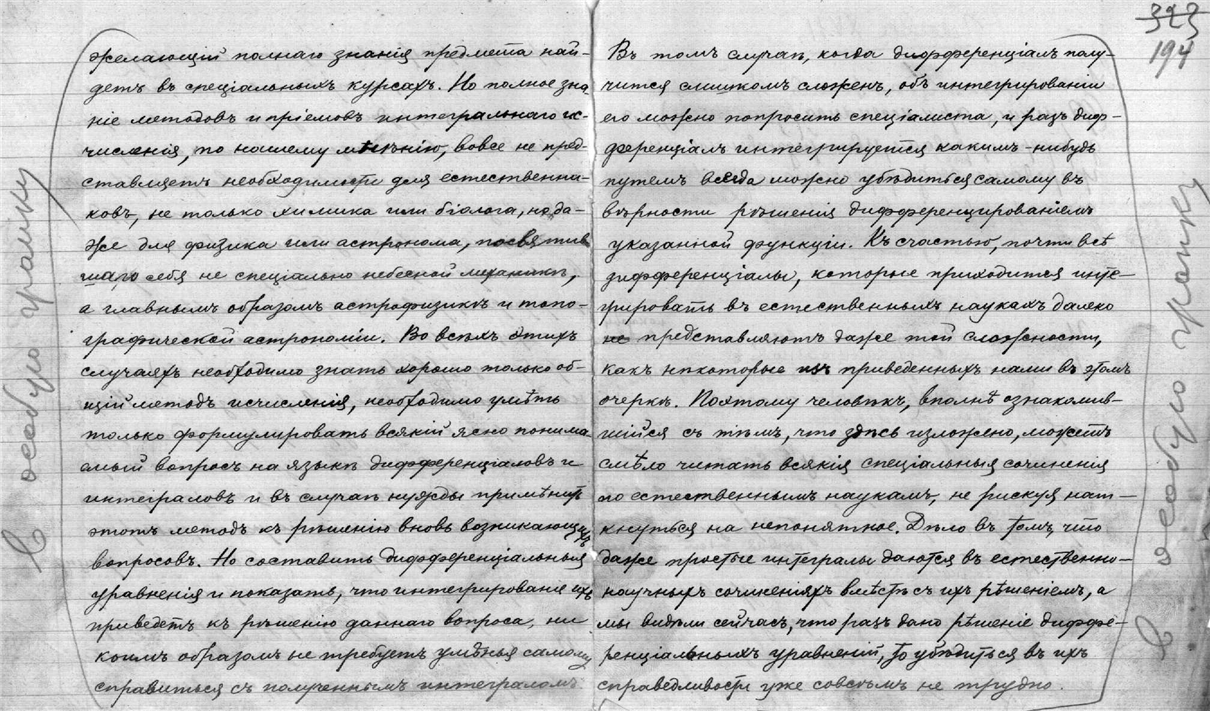 желающій полнаго знанія предмета най-
детъ въ спеціальныхъ курсахъ. Но полное зна
ніе методовъ и пріемовъ интегральнаго ис-
численія, по нашему мнѣнію, вовсе не пред-
ставляетъ необходимости для естественни-
ковъ, не только химика или біолога, но да-
же для физика или астронома, посвятив
шаго себя не спеціально небесной механикѣ,
а главнымъ образомъ астрофизикѣ и топо-
графической астрономіи. Во всѣхъ этихъ
случаяхъ необходимо знать хорошо только об-
щій методъ исчисленія, необходимо умѣть
только формулировать всякій ясно понима
емый вопросъ на языкѣ дифференціаловъ и
интеграловъ и въ случаѣ нужды примѣнить
этотъ методъ къ рѣшенію вновь возникающихъ
вопросовъ. Но составить дифференціальныя
уравненія и показать, что интегрированіе ихъ
приведетъ къ рѣшенію даннаго вопроса, ни
коимъ образомъ не требуетъ умѣнья самому
справиться съ полученнымъ интеграломъ.
В особую грамку
323
194
Въ томъ случаѣ, когда дифференціалъ полу-
чится слишкомъ сложенъ, объ интегрированіи
его можно попросить спеціалиста, и разъ диф-
ференціалъ интегрируется какимъ-нибудь
путемъ всегда можно убѣдиться самому въ
вѣрности рѣшенія дифференцированіемъ
указанной функціи. Къ счастью, почти всѣ
дифференціалы, которые приходится инте-
грировать въ естественныхъ наукахъ далеко
не представляютъ даже той сложности,
какъ нѣкоторые изъ приведенныхъ нами въ этомъ
очеркѣ. Поэтому человѣкъ, вполнѣ ознакомив-
шійся съ тѣмъ, что здѣсь изложено, можетъ
смѣло читать всякія спеціальныя сочиненія
по естественнымъ наукамъ, не рискуя нат-
кнуться на непонятное. Дѣло въ томъ, что
даже простые интегралы даются въ естественно-
научныхъ сочиненіяхъ вмѣстѣ съ ихъ рѣшеніемъ, а
мы видѣли сейчасъ, что разъ дано рѣшеніе диффе-
ренціальныхъ уравненій, то убѣдиться въ ихъ
справедливости уже совсѣмъ не трудно.
В особую гранку